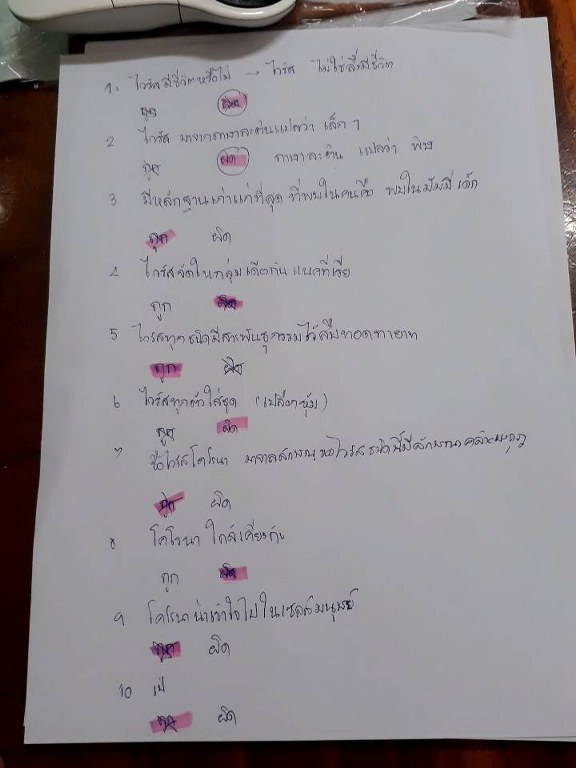 1. ไวรัสมีชีวิตหรือไม่ → ไวรัส ไม่ใช่สิ่งมีชีวิต
ถูก ผิด
2 ไวรัส มาจากภาษาละตินแปลว่า เล็ก ๆ
ถูก ผิด ภาษาละติน แปลว่า พิษ
3 มีหลักฐานเก่าแก่ที่สุด ที่พบในคนคือ พบในมัมมี่เด็ก
ถูก ผิด
4 ไวรัสจัดในกลุ่มเดียวกับแบคทีเรีย
ถูก ผิด
5 ไวรัสทุกชนิดมีสารพันธุกรรมไว้สืบทอดทายาท
ถูก ผิด
6 ไวรัสทุกตัวใส่ชุด (เปลือกหุ้ม)
ถูก ผิด
7 ชื่อไวรัสโคโรนา มาจากลักษณะของไวรัสชนิดนี้มีลักษณะคล้ายมงกุฎ
ถูก ผิด
8 โคโรนา ใกล้เคียงกับ
ถูก ผิด
9 โคโรนา เข้าไปในเซลล์มนุษย์
ถูก ผิด
10 เป
ถูก ผิด